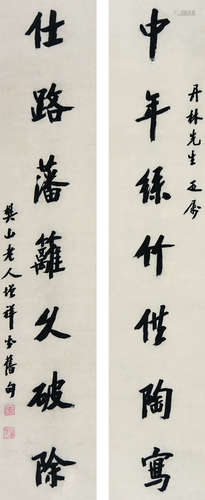 丹林先生正屬
中年絲竹供陶寫
仕路藩籬久破除
樊山老人增祥書舊句